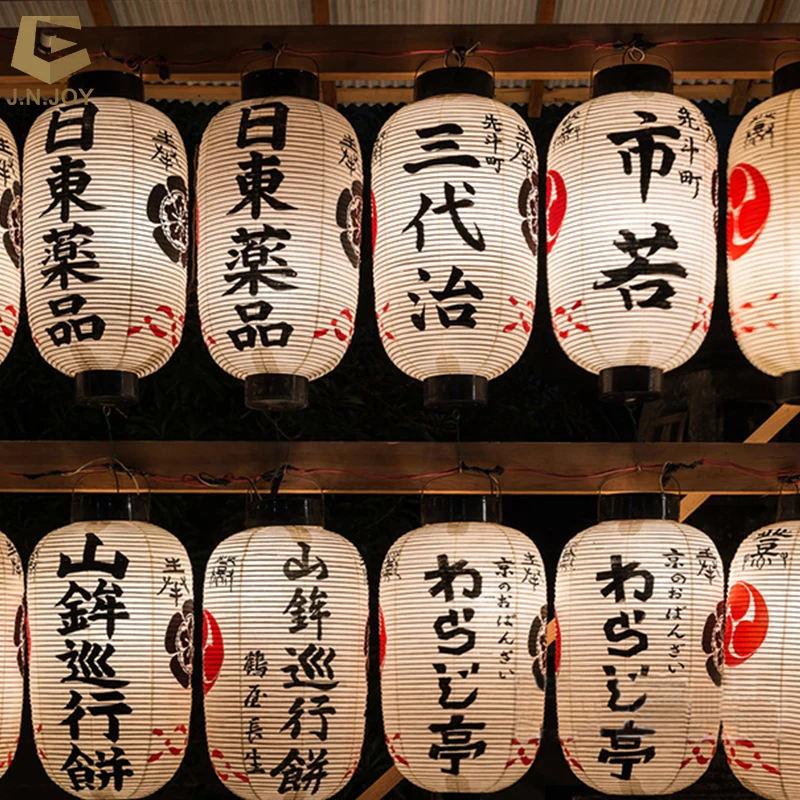 J.N.JOY
日東薬品
奉
日東薬品
奉
先斗町
三代治
奉
先斗町
市若
山鉾巡行餅
奉
山鉾巡行餅
鶴屋長生
京のおばんざい
わらじ亭
奉
京のおばんざい
わらじ亭
奉